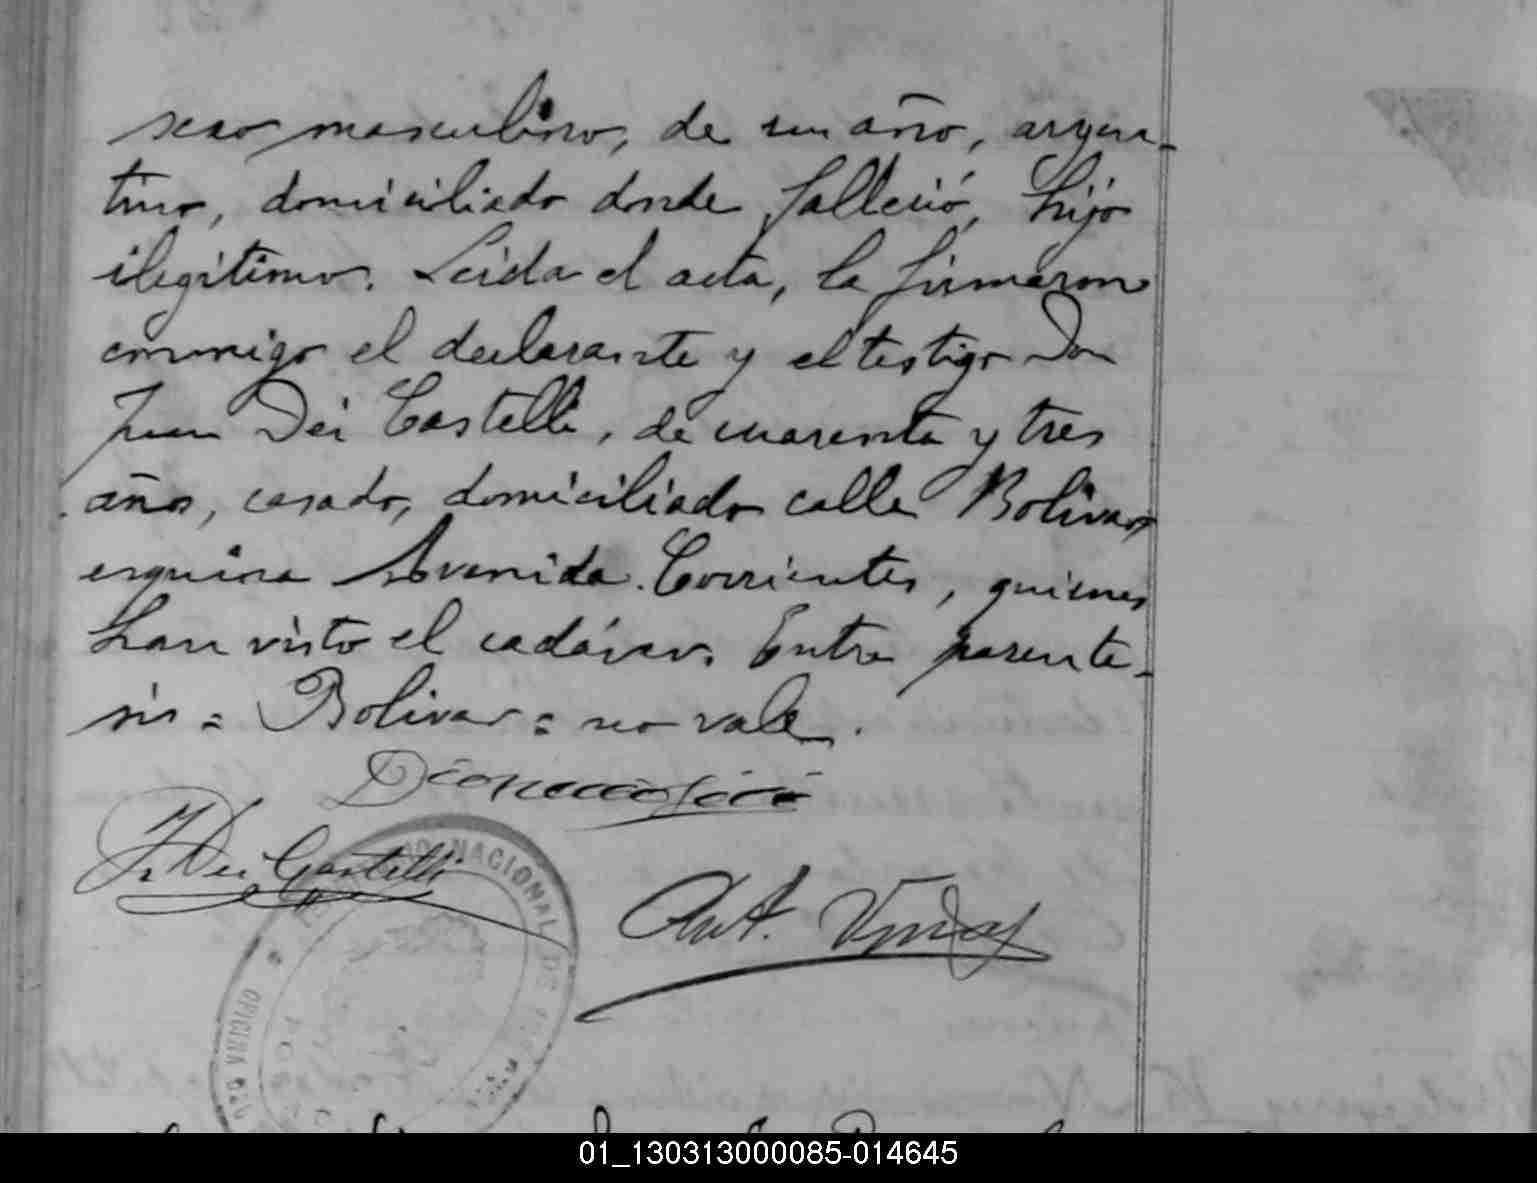 sexo masculino, de un año, argen-
tino, domiciliado donde falleció, hijo
ilegítimo. Leida el acta, la firmaron
conmigo el declarante y el testigo Don
Juan Dei Castelli, de cuarenta y tres
años, casado, domiciliado calle Bolivar
esquina Avenida Corrientes, quienes
han visto el cadáver. Entre parente-
sis = Bolivar = no vale.
J. Dei Castelli
NACIONAL DE
Ant.
OFICINA
01_130313000085-014645